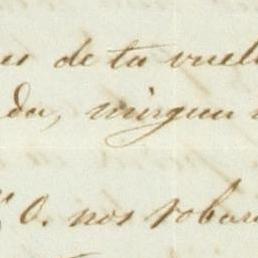 de tu vuel
da, ningun
O. nos robar